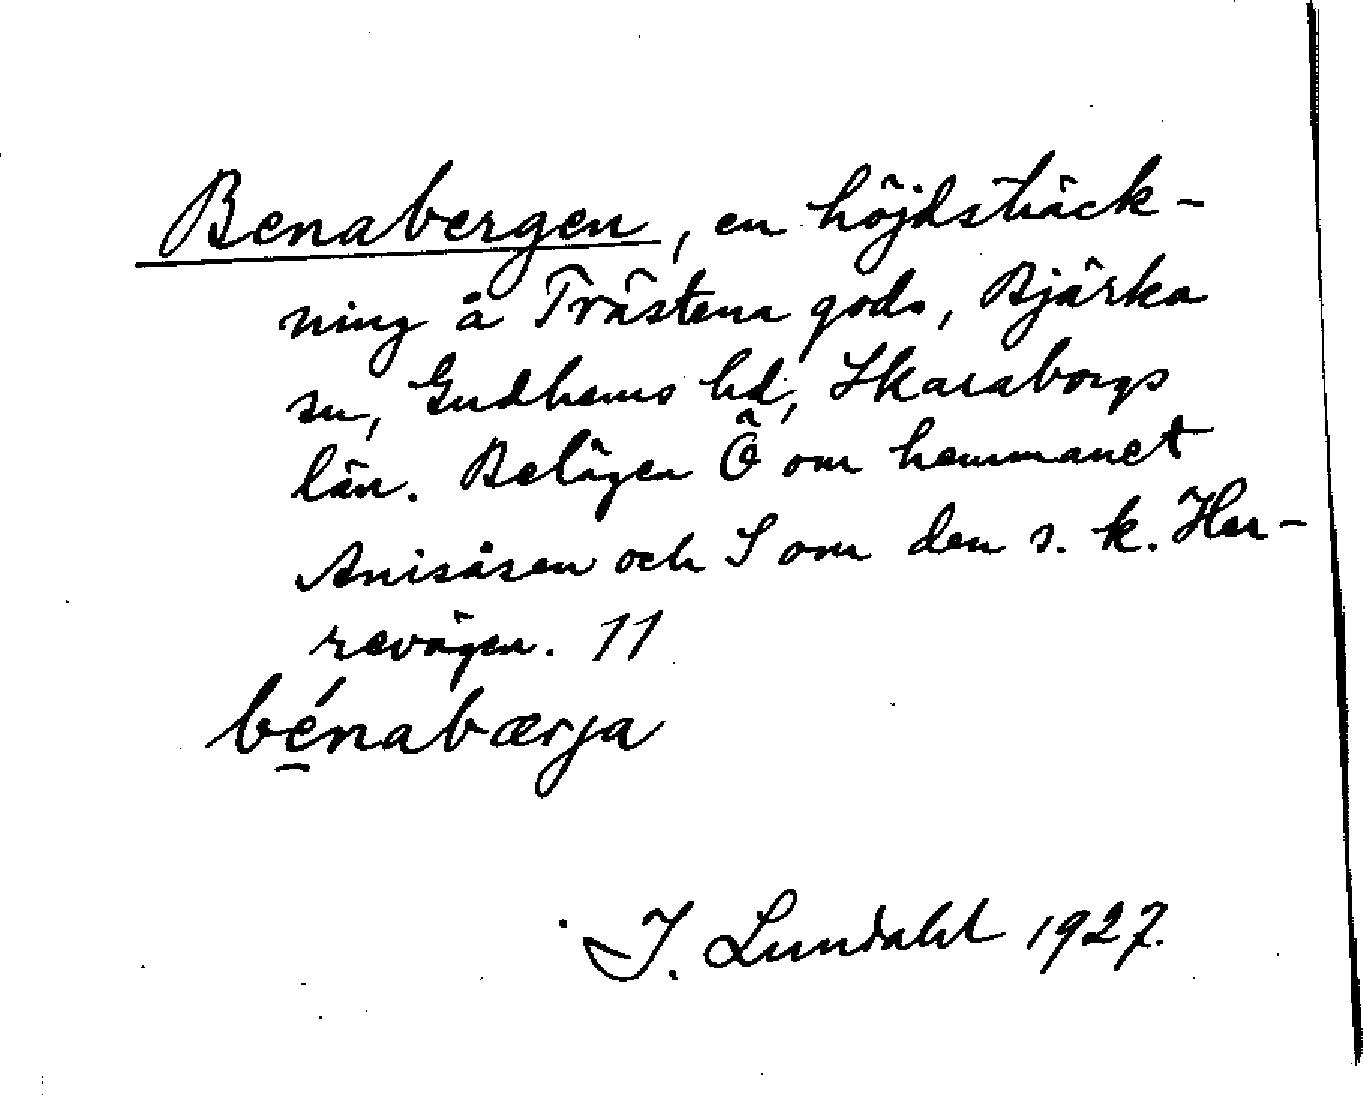 Benabergen, en höjdsträck-
ning å Trästena gods, Bjärka
sn, Gudhems hd, Skaraborgs
län. Belägen Ö om hemmanet
Anisåsen och S om den s. k. Her-
revägen. 11
bénabærja
I. Lundahl 1927.